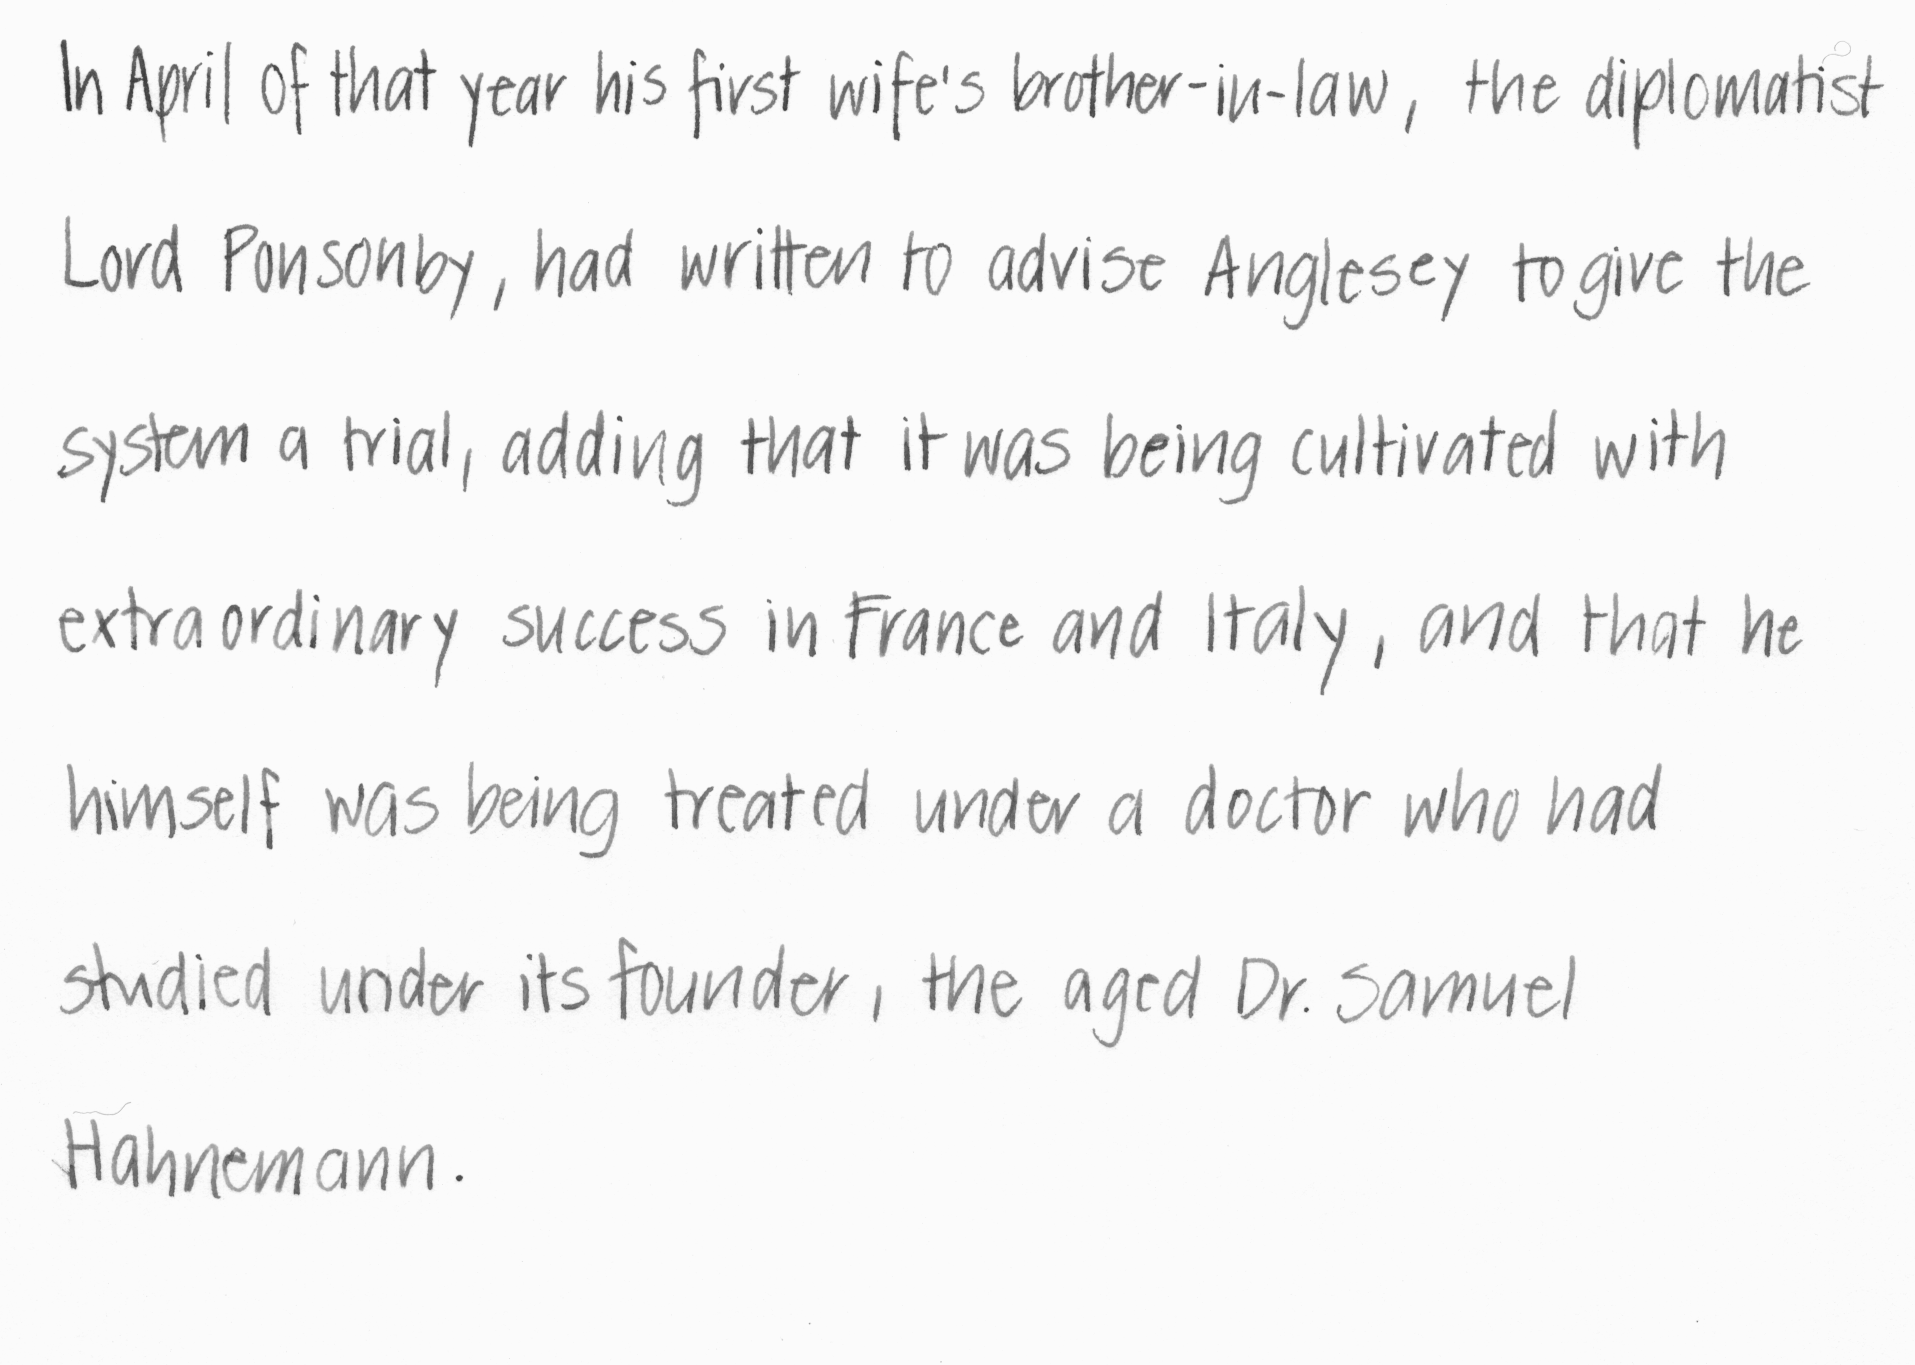 In April of that year his first wife's brother-in-law, the diplomatist
Lord Ponsonby, had written to advise Anglesey to give the
system a trial, adding that it was being cultivated with
extraordinary success in France and Italy, and that he
himself was being treated under a doctor who had
studied under its founder, the aged Dr. Samuel
Hahnemann.